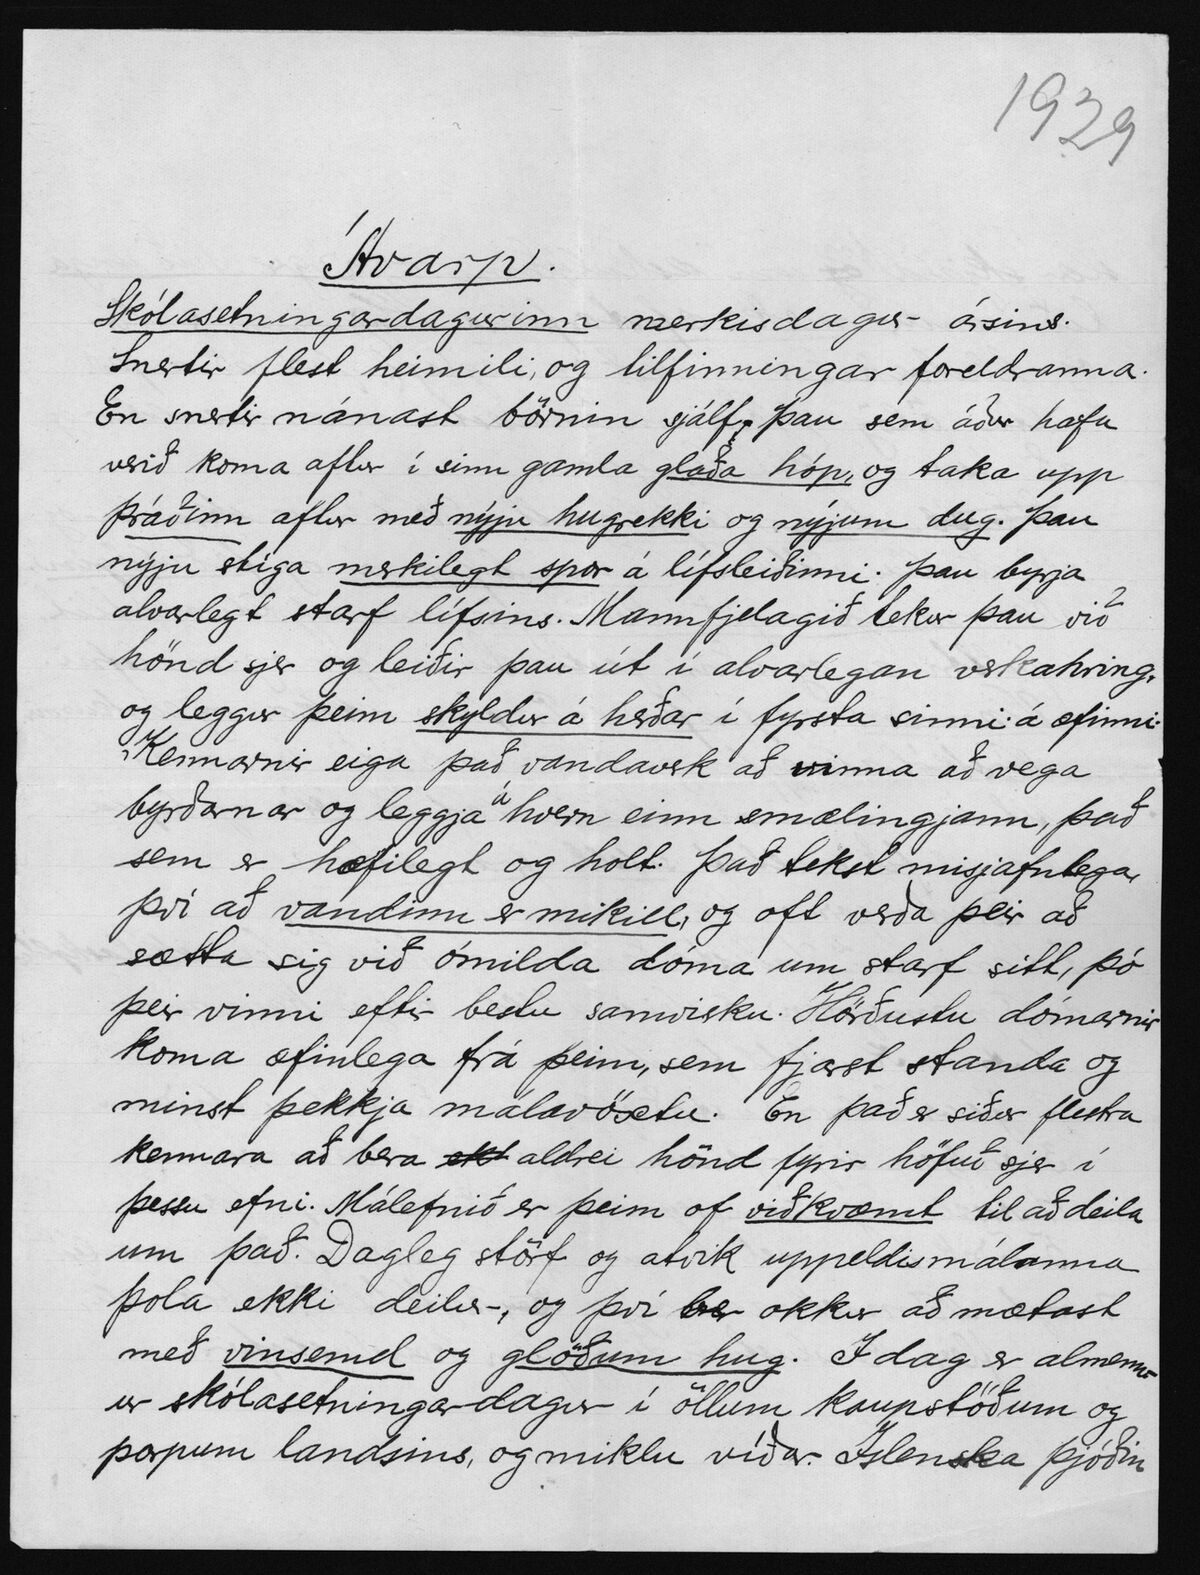 1929
Ávarp.
Skólasetningardagurinn merkisdagur ársins.
Snertir flest heimili, og tilfinningar foreldranna.
En snertir nánast börnin sjálf, þau sem áður hafa
verið koma aftur í sinn gamla glaða hóp, og taka upp
þráðinn aftur með nýju hugrekki og nýjum dug. Þau
nýju stíga merkilegt spor á lífsleiðinni. Þau byrja
alvarlegt starf lífsins. Mannfjelagið tekur þau við
hönd sjer og leiðir þau út í alvarlegan verkahring,
og leggur þeim skyldur á herðar í fyrsta sinni á æfinni.
Kennarnir eiga það vandaverk að vinna að vega
byrðarnar og leggja á hvern einn smælingjann, það
sem er hæfilegt og holt. Það tekst misjafnlega,
því að vandinn er mikill, og oft verða þeir að
sætta sig við ómilda dóma um starf sitt, þó
þeir vinni eftir bestu samvisku. Hörðustu dómarnir
koma æfinlega frá þeim, sem fjærst standa og
minst þekkja málavöxtu. En það er siður flestra
kennara að bera ekk aldrei hönd fyrir höfuð sjer í
þessu efni. Málefnið er þeim of viðkvæmt til að deila
um það. Dagleg störf og atvik uppeldismálanna
þola ekki deilur, og því ber okkur að mætast
með vinsemd og glöðum hug. Í dag er almenn-
ur skólasetningardagur í öllum kaupstöðum og
þorpum landsins, og miklu víðar. Íslenska þjóðin